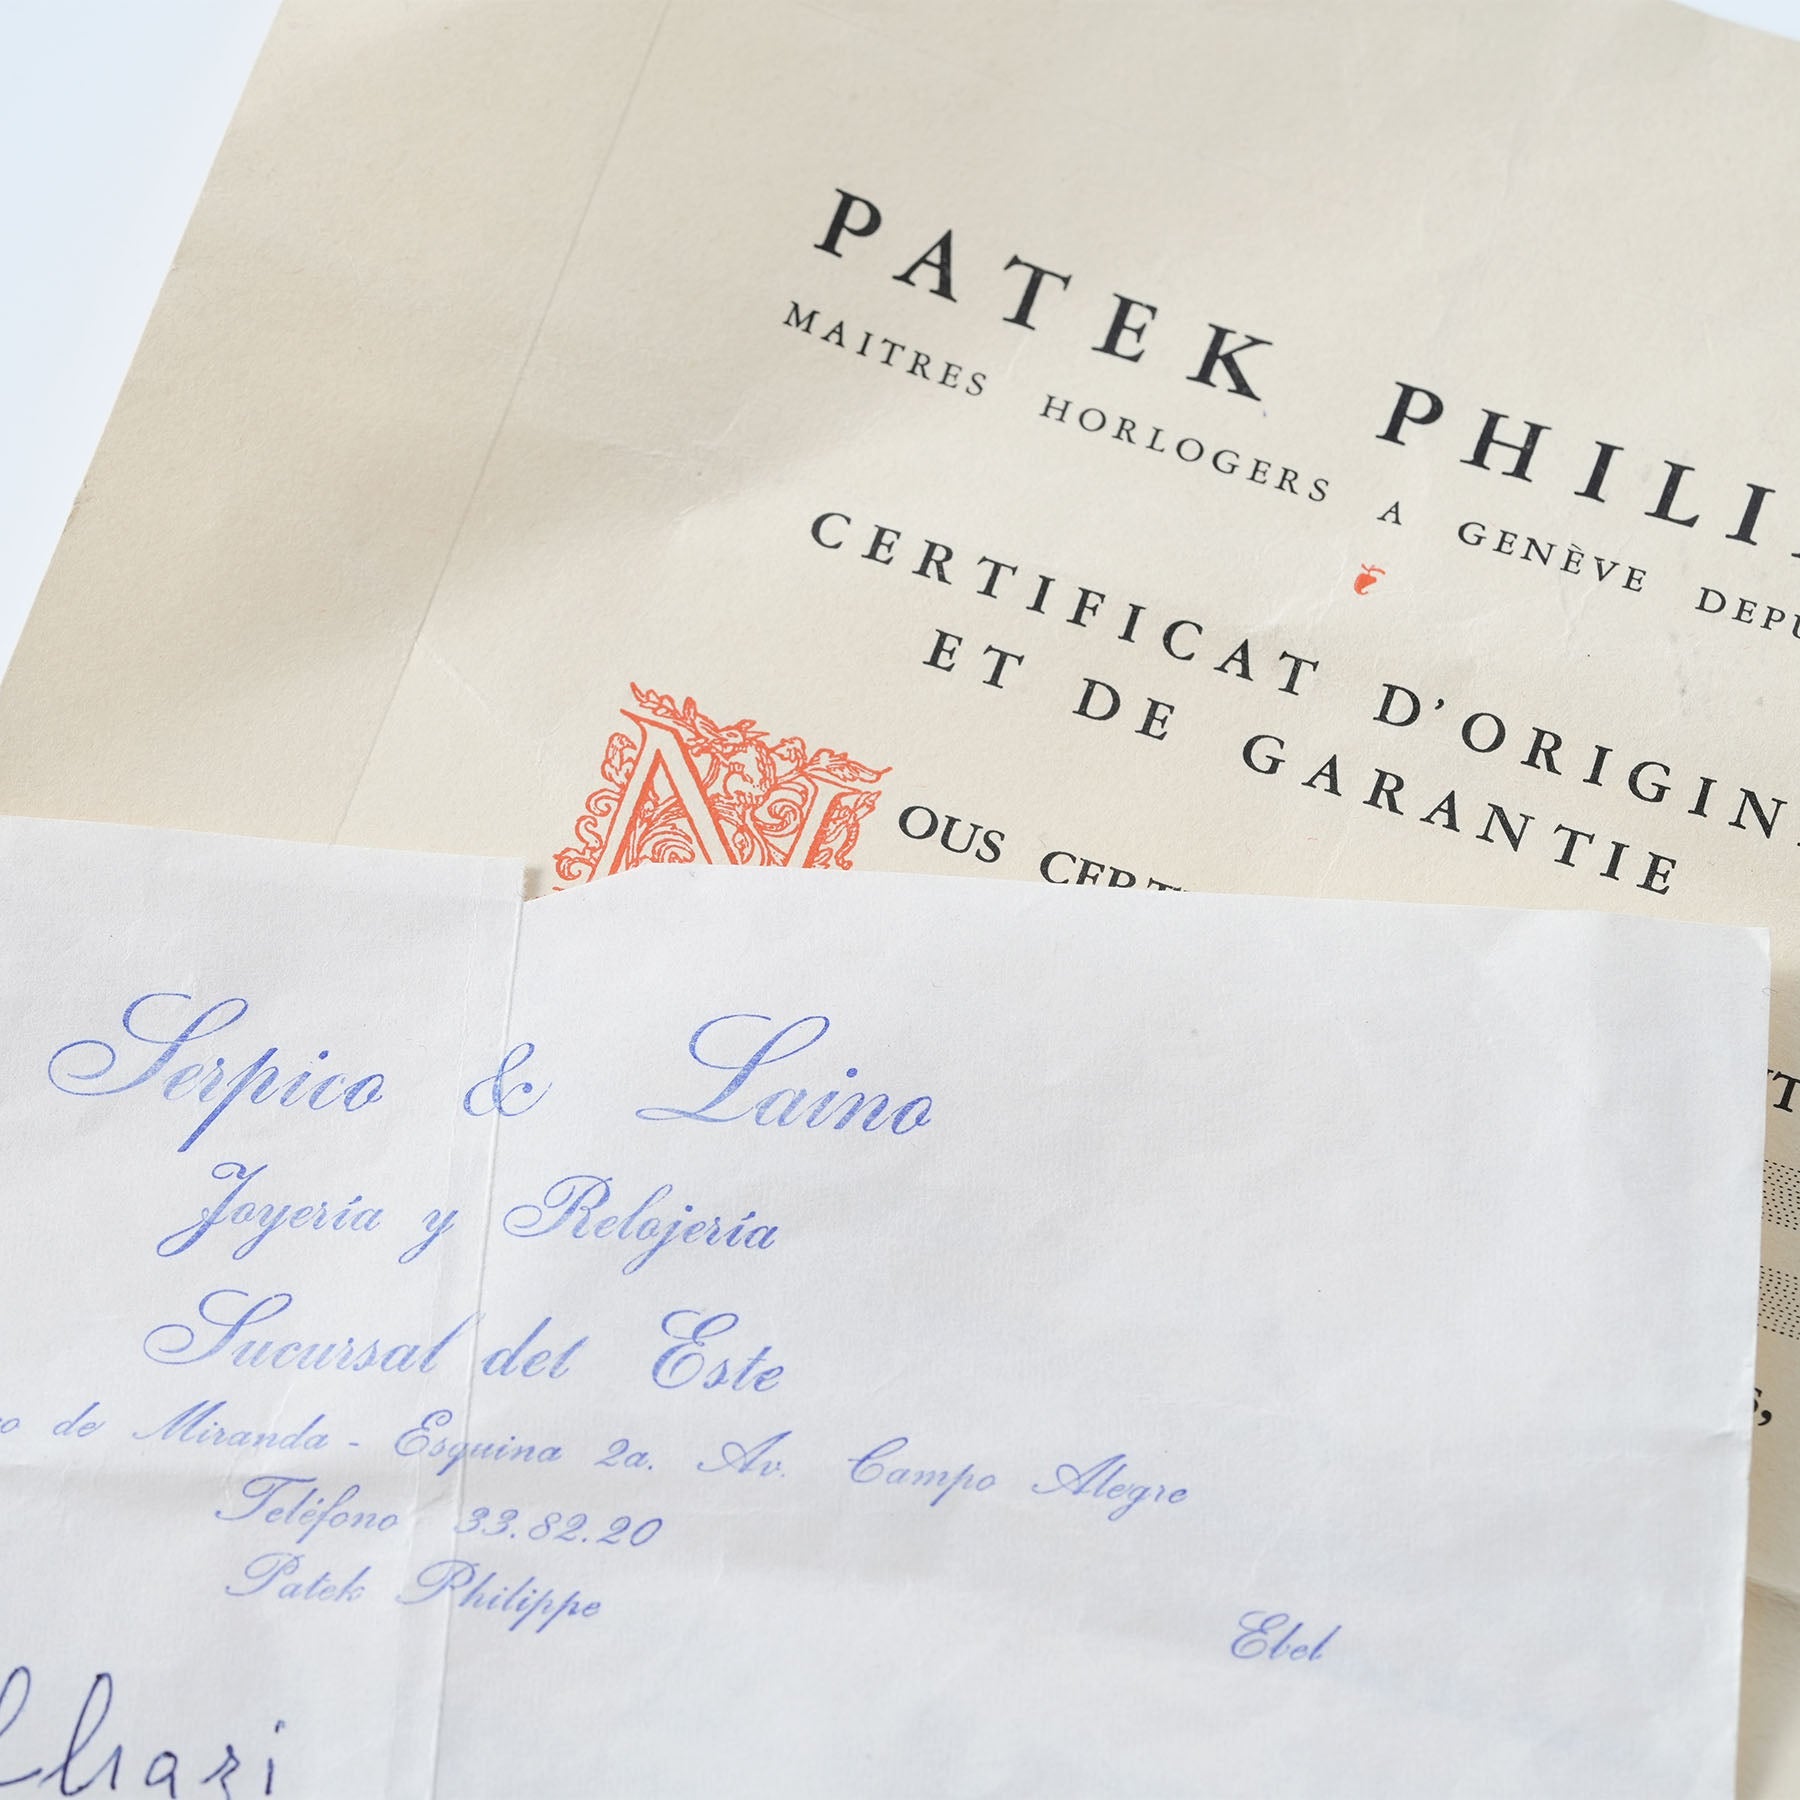 PATEK PHILI
MAITRES HORLOGERS A GENÈVE DEPU
CERTIFICAT D'ORIGIN
ET DE GARANTIE
NOUS CERT
Serpico & Laino
Joyería y Relojería
Sucursal del Este
de Miranda - Esquina 2a. Av. Campo Alegre
Teléfono 33.82.20
Patek Philippe
Ebel